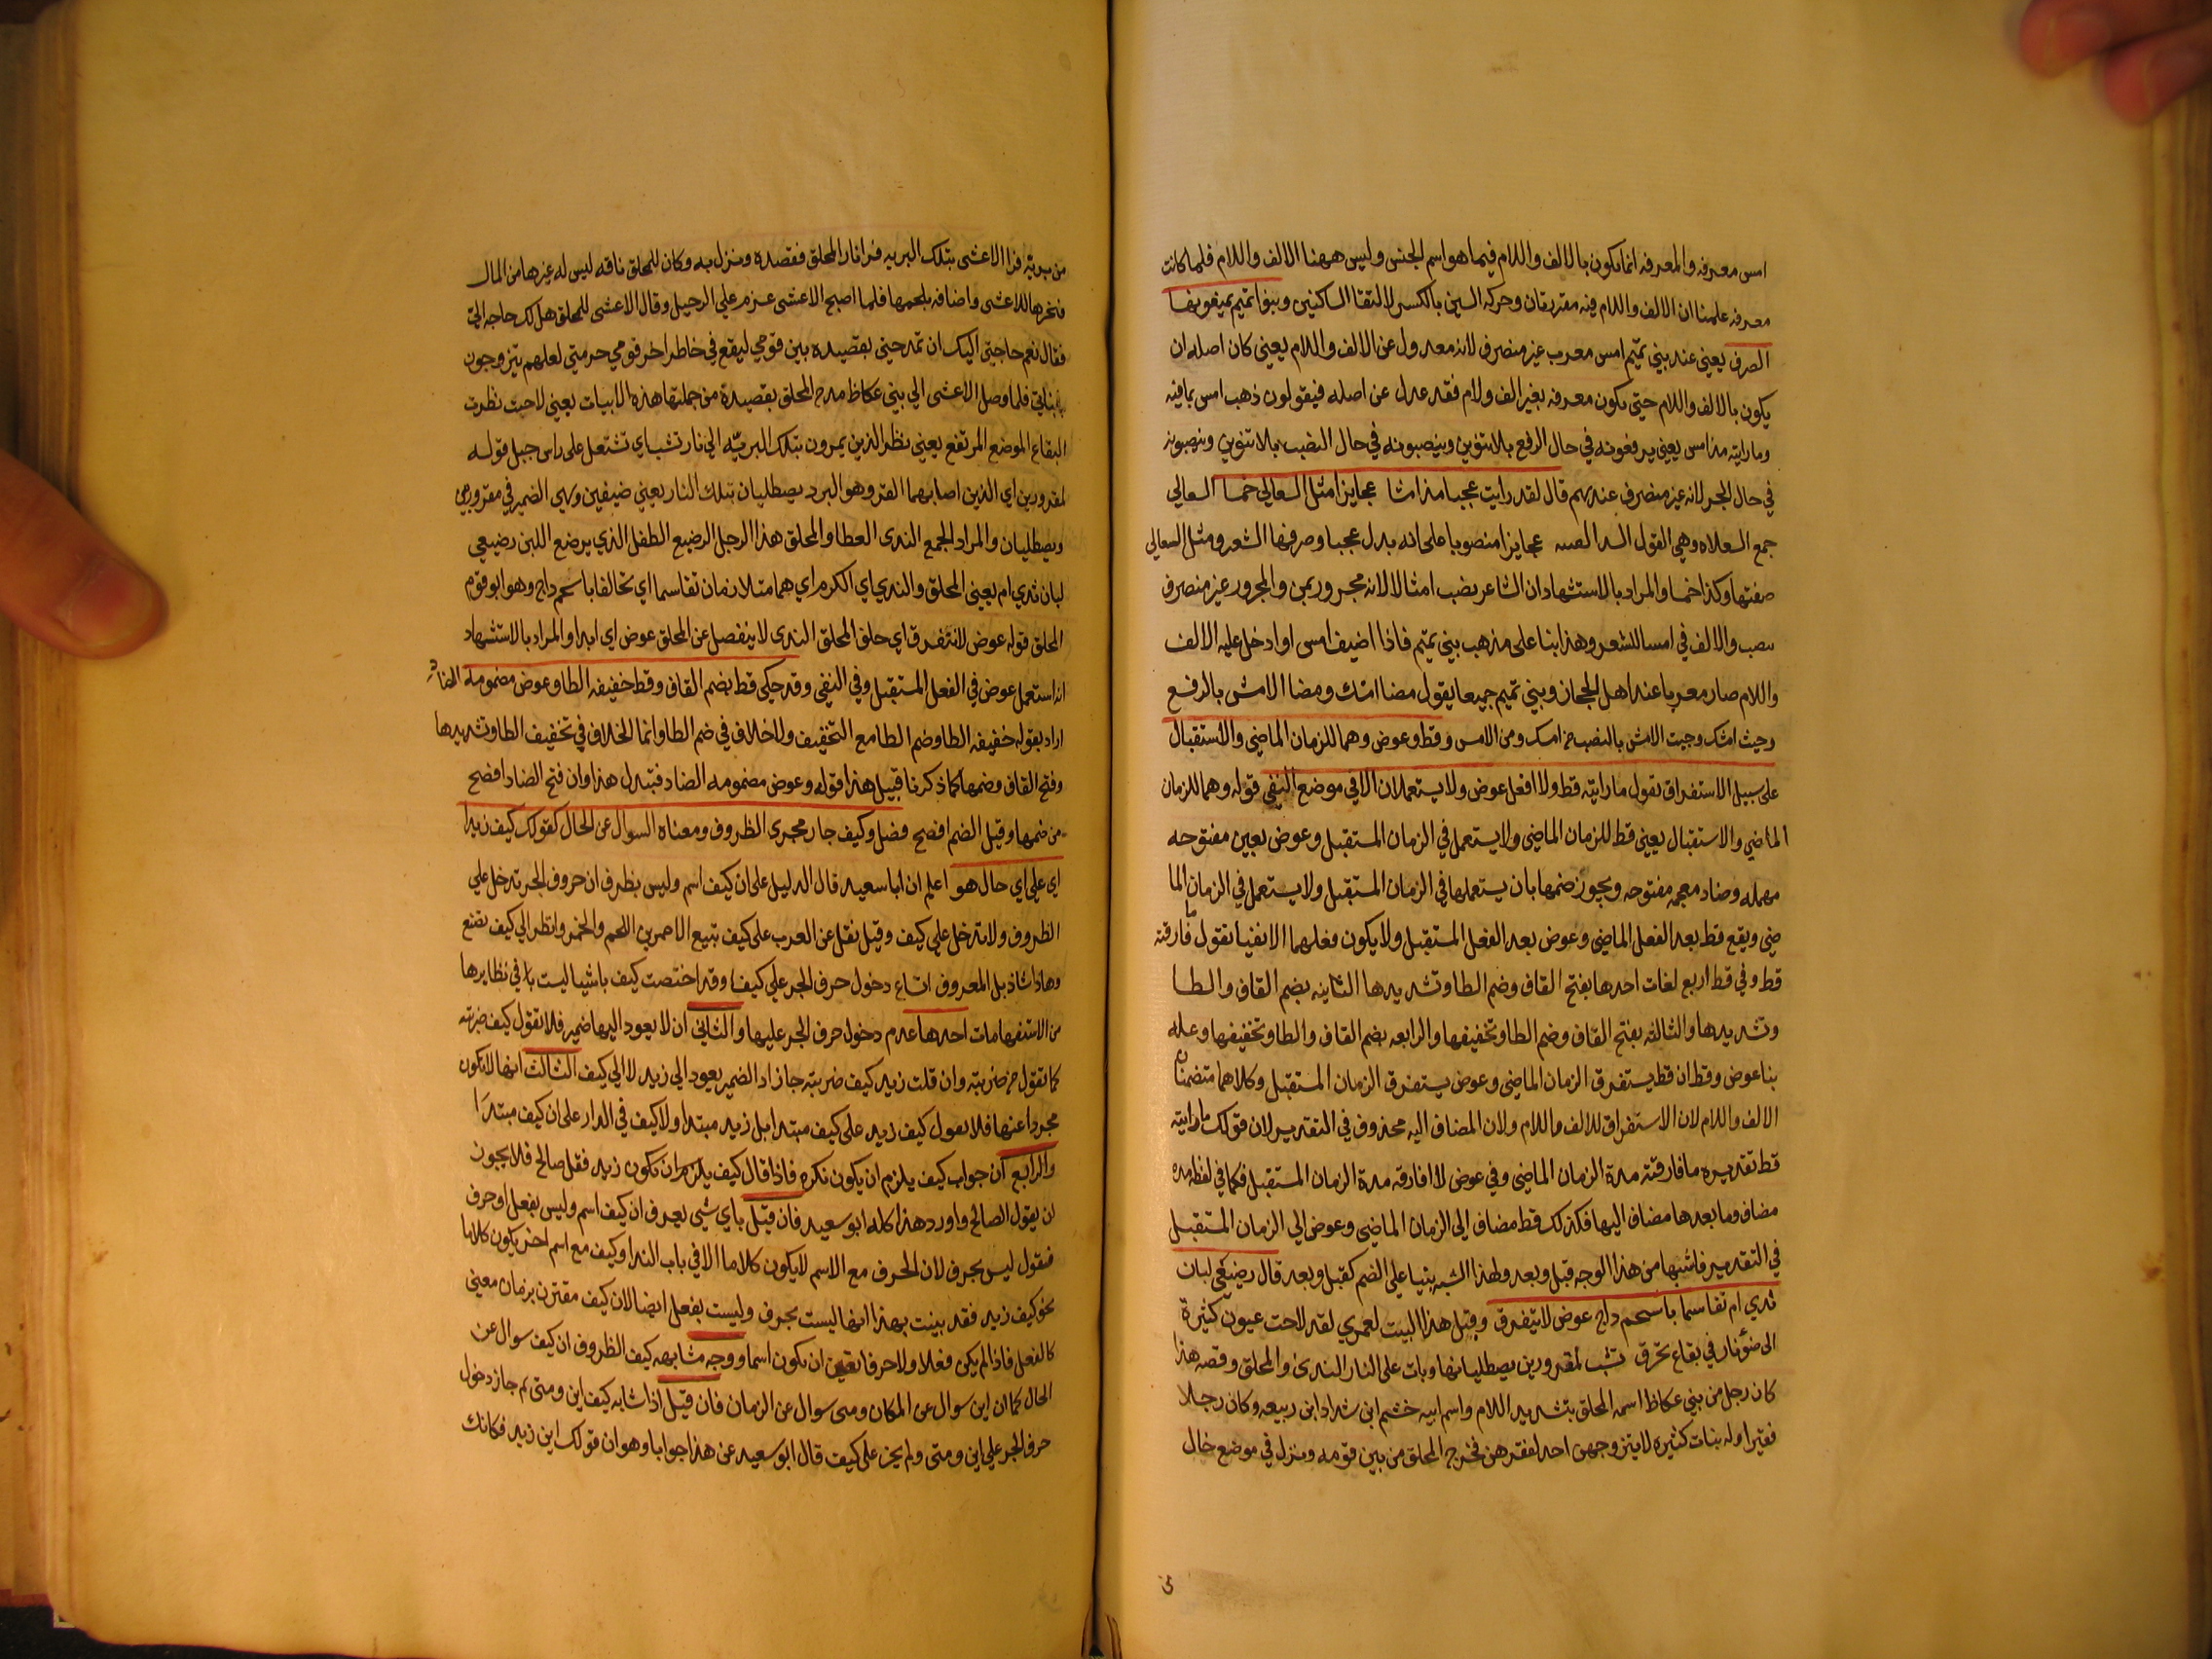 امس معرفه والمعرفه انما يكون بالالف واللام فيما هو اسم الجنس وليس ههنا الالف واللام فلما كانت
معرفه علمنا ان الالف واللام فيه مقدرتان وحركه السين بالكسر لالتقا الساكنين وبنوا تميم يمنعونها
الصرف يعني عند بني تميم امس معرب غير منصرف لانه معدول عن الالف واللام يعني كان اصله ان
يكون بالالف واللام حتى يكون معرفه بغير الف ولام فقد عدل عن اصله فيقولون ذهب امس بما فيه
وما رايته مذ امس يعني يرفعونه في حال الرفع بلا تنوين وينصبونه في حال النصب بلا تنوين وينصبونه
في حال الجر لانه غير منصرف عندهم قال لقد رايت عجبا مذ امسا عجايزا مثل السعالي خمسا السعالي
جمع السعلاه وهي الغول عجايزا منصوبا على انه بدل عجبا وصرفها الشعر ومثل السعالي
صفتها وكذا خمسا والمراد بالاستشهاد ان الشاعر نصب امثالا لانه مجرور بمن والمجرور غير منصرف
نصب والالف في امسا للشعر وهذا بنا على مذهب بني تميم فاذا اضيف امس او ادخل عليه الالف
واللام صار معربا عند اهل الحجاز وبني تميم جميعا يقول مضا امسك ومضا الامس بالرفع
وجيت الامس بالنصب من امسك ومن الامس وقط وعوض وهما للزمان الماضي والاستقبال
على سبيل الاستغراق تقول ما رايته قط ولا افعل عوض ولا يستعملان الا في موضع النفي قوله وهما للزمان
الماضي والاستقبال يعني قط للزمان الماضي ولا يستعمل في الزمان المستقبل وعوض بعين مفتوحه
مهمله وضاد معجمه مفتوحه ويجوز ضمها بان يستعملها في الزمان المستقبل ولا يستعمل في الزمان الما
ضي ويقع قط بعد الفعل الماضي وعوض بعد الفعل المستقبل ولا يكون فعلهما الا نفيا تقول ما فارقته
قط وفي قط اربع لغات احدها بفتح القاف وضم الطا وتشديدها الثانيه بضم القاف والطا
وتشديدها والثالثه بفتح القاف وضم الطا وتخفيفها والرابعه بضم القاف والطا وتخفيفها وعله
بنا عوض وقط ان قط يستغرق الزمان الماضي وعوض يستغرق الزمان المستقبل وكلاهما متضمنان
الالف واللام لان الاستغراق للالف واللام ولان المضاف اليه محذوف في التقدير لان قولك ما رايته
قط تقديره ما فارقته مدة الزمان الماضي وفي عوض لا افارقه مدة الزمان المستقبل فكما في لفظه مده
مضاف وما بعدها مضاف اليها فكذلك قط مضاف الى الزمان الماضي وعوض الي الزمان المستقبل
في التقدير فاشبها من هذا الوجه قبل وبعد ولهذا الشبه بنيا علي الضم كقبل وبعد قال رضيعي لبان
ثدي ام تقاسما باسحم داج عوض لا يتفرق وقبل هذا البيت لعمري لقد لاحت عيون كثيرة
الى ضوء نار في بقاع تحرق تشب لمقرورين يصطليانها وبات على النار الندى والمحلق وقصه هذا
كان رجل من بني عكاظ اسمه المحلق بتشديد اللام واسم ابيه خشم ابن شداد ابن ربيعه وكان رجلا
فقيرا وله بنات كثيره لا يتزوجهن احد لفقرهن فخرج المحلق من بين قومه ونزل في موضع خال
من بريّة فرا الاعشى بتلك البريه فرا نار المحلق فقصده ونزل به وكان للمحلق ناقه ليس له غيرها من المال
فنحرها للاعشى واضافه بلحمها فلما اصبح الاعشى عزم علي الرحيل وقال الاعشى للمحلق هل لك حاجه اليّ
فقال نعم حاجتي اليك ان تمدحني بقصيده بين قومي ليقع في خاطر اخر قومي حرمتي لعلهم يتزوجون
ببناتي فلما وصل الاعشى الي بني عكاظ مدح المحلق بقصيدة من جملتها هذه الابيات يعني لاحت نظرت
البقاع الموضع المرتفع يعني نظر الذين يمرون بتلك البريّه الي نار تشب اي تشتعل على راس جبل قوله
لمقرورين اي الذين اصابهما القر وهو البرد يصطليان بتلك النار يعني ضيفين وهي الضمير في مقرورين
ويصطليان والمراد الجمع الندى العطا والمحلق هذا الرجل الرضيع الطفل الذي يرضع اللبن رضيعي
لبان ثدي ام يعني المحلق والندي اي الكرم اي هما متلازمان تقاسما اي تحالفا باسحم داج وهو ابو قوم
المحلق قوله عوض لا نتفرق اي حلق المحلق الندى لا ينفصل عن المحلق عوض اي ابدا والمراد بالاستشهاد
انه استعمل عوض في الفعل المستقبل وفي النفي وقد حكي قط بضم القاف وقط خفيفه الطا وعوض مضمومه الضاد
اراد بقوله خفيفه الطا وضم الطا مع التخفيف ولا خلاف في ضم الطا وانما الخلاف في تخفيف الطا وتشديدها
وفتح القاف وضمها كما ذكرنا قبيل هذا قوله وعوض مضمومه الضاد فبتدل هذا وان فتح الضاد افصح
من ضمها وقيل الضم افصح فصل وكيف جار مجرى الظروف ومعناه السوال عن الحال كقولك كيف زيد ا
اي علي اي حال هو اعلم ان ابا سعيد قال الدليل على ان كيف اسم وليس بظرف ان حروف الجر تدخل علي
الظروف ولا تدخل علي كيف وقيل نقل عن العرب على كيف تبيع الاحمرين اللحم والخمر وانظر الي كيف تصنع
وهاذا شاذ بل المعروف اتساع دخول حرف الجر علي كيف وقد اختصت كيف باشيا ليست في نظايرها
من الاستفهامات احدها عدم دخول حرف الجر عليها والثاني ان لا يعود اليها ضمير فلا تقول كيف ضربته
كما تقول من ضربته وان قلت زيد كيف ضربته جاز اذ الضمير يعود الي زيد لا الي كيف الثالث انها لا تكون
مجردا عنها فلا نعول كيف زيد على كيف مبتدا بل زيد مبتدا ولا كيف في الدار على ان كيف مبتدَا
والرابع ان جواب كيف يلزم ان يكون نكره فاذا قال كيف يلزم ان تكون زيد فقل صالح فلا يجوز
ان يقول الصالح واورد هذا كله ابو سعيد فان قيل باي شي يعرف ان كيف اسم وليس بفعل او حرف
فنقول ليس بحرف لان الحرف مع الاسم لا يكون كلاما الا في باب الندا وكيف مع اسم اخر يكون كلاما
نحو كيف زيد فقد بينت بهذا انها ليست بحرف وليست بفعل ايضا لان كيف مقترن بزمان معني
كالفعل فاذا لم يكن فعلا ولا حرفا تعين ان تكون اسما ووجه مشابهه كيف الظروف ان كيف سوال عن
الحال كما ان اين سوال عن المكان ومتى سوال عن الزمان فان قيل اذا شابه كيف اين ومتى لم جاز دخول
حرف الجر علي اين ومتى ولم يجز على كيف قال ابو سعيد عن هذا جوابا وهو ان قولك اين زيد فكانك